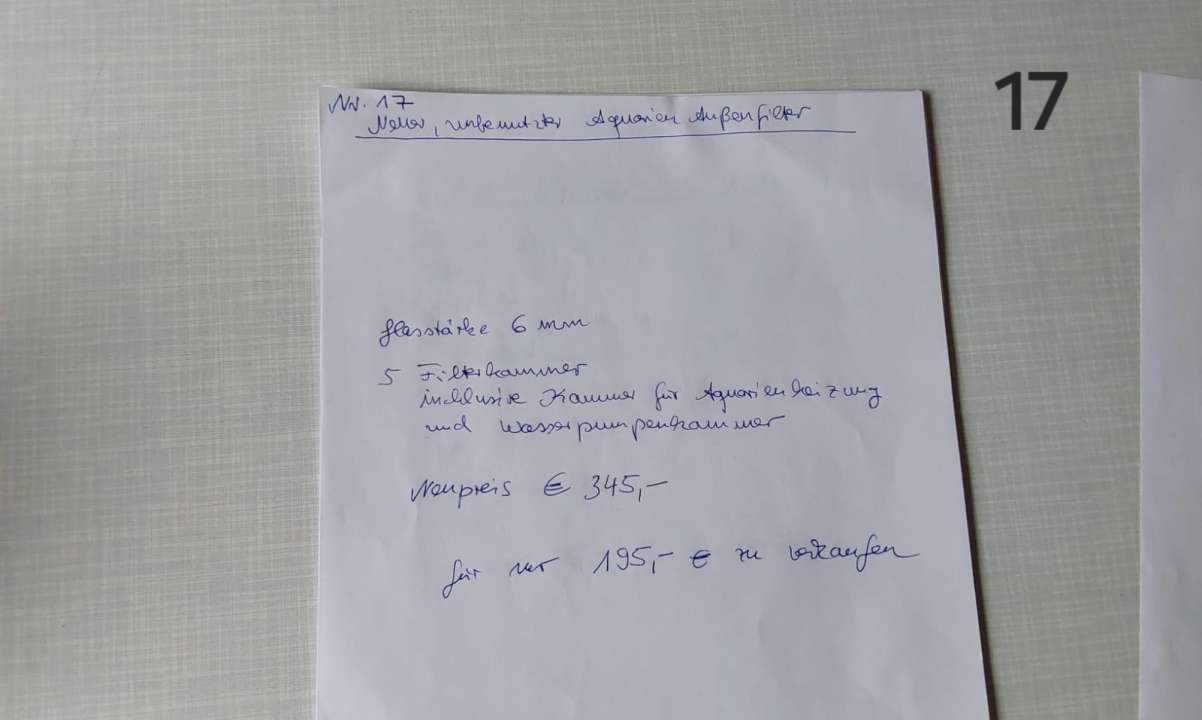 17
Nr. 17
Neuer, unbenutzter Aquarien Außenfilter
Glasstärke 6 mm
5 Filterkammer
inklusive Kammer für Aquarienheizung
und Wasserpumpenkammer
Neupreis € 345,-
für nur 195,- € zu verkaufen